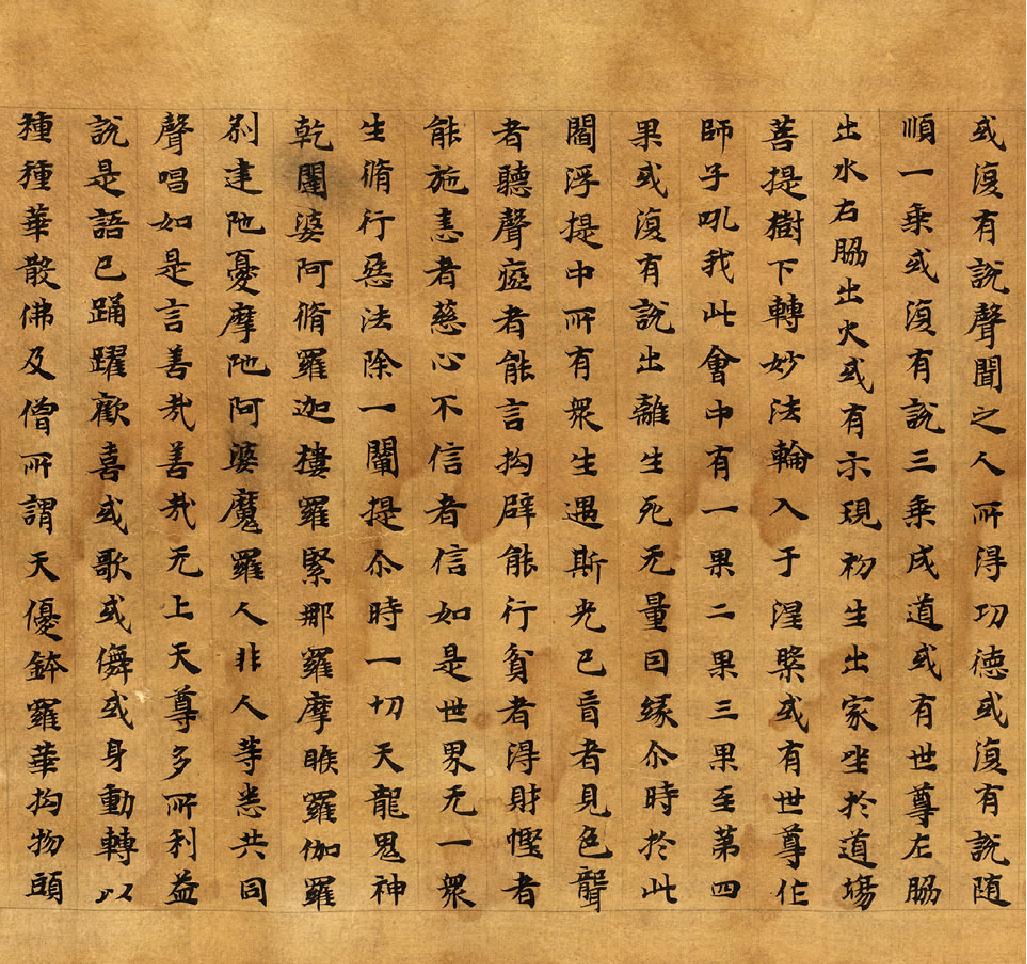 或復有說聲聞之人所得功德或復有說随
順一乗或復有說三乗成道或有世尊左脇
出水右脇出火或有示現初生出家坐於道場
菩提樹下轉妙法輪入于涅槃或有世尊作
師子吼我此會中有一果二果三果至第四
果或復有說出離生死无量因緣尒時於此
閻浮提中所有衆生遇斯光已盲者見色聾
者聽聲瘂者能言拘躃能行貧者得財慳者
能施恚者慈心不信者信如是世界无一衆
生脩行惡法除一闡提尒時一切天龍鬼神
乾闥婆阿脩羅迦樓羅緊那羅摩睺羅伽羅
剎建陁憂摩陁阿婆魔羅人非人等悉共同
聲唱如是言善㢤善㢤无上天尊多所利益
說是語已踊躍歡喜或歌或儛或身動轉以
種種華散佛及僧所謂天優鉢羅華拘物頭